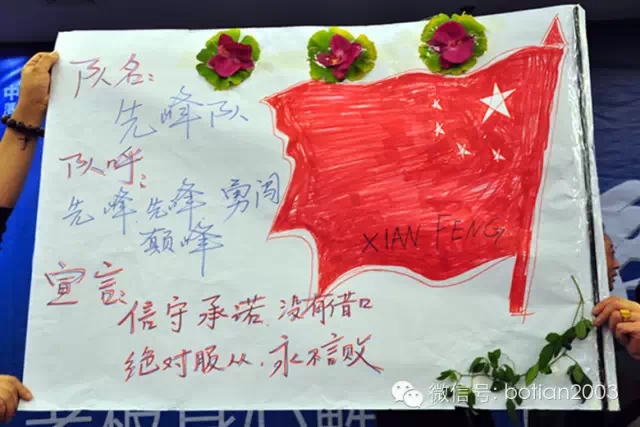 队名:
先峰队
队呼:
先峰.先峰 勇闯
巅峰
XIAN FENG
宣言:
信守承诺.没有借口
绝对服从.永不言败
微信号: botian2003